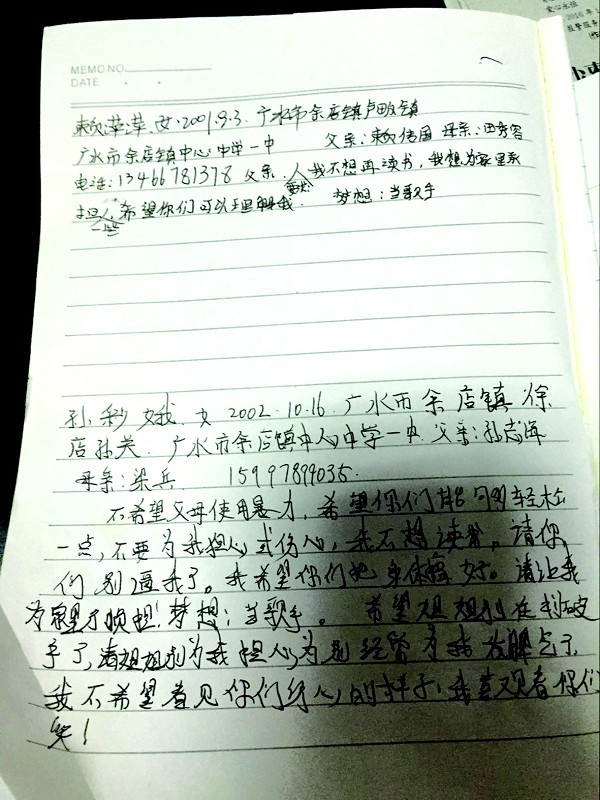 爱心永恒
2016年
MEMO NO.
DATE
女.2001.9.3. 广水市余店镇卢畈镇
广水市余店镇中心中学一中 父亲:赖传国 母亲:田秀容
电话:13466781378 父亲: 我不想再读书,我想为家里承
担一些,希望你们可以理解我. 梦想:当歌手
孙 娥 女 2002.10.16. 广水市余店镇徐
店孙关. 广水市余店镇中心中学一中 父亲:孙志海
母亲:梁兵 15997899035.
不希望父母使用暴力,希望你们能够轻松
一点,不要为我担心或伤心,我不想读书。请你
们别逼我了。我希望你们把身体搞好。请让我
为家里分负担!梦想:当歌手。 希望姐姐别在
手了,请姐姐别为我担心,为 我
我不希望看见你们伤心的样子,我喜欢看你们
笑!